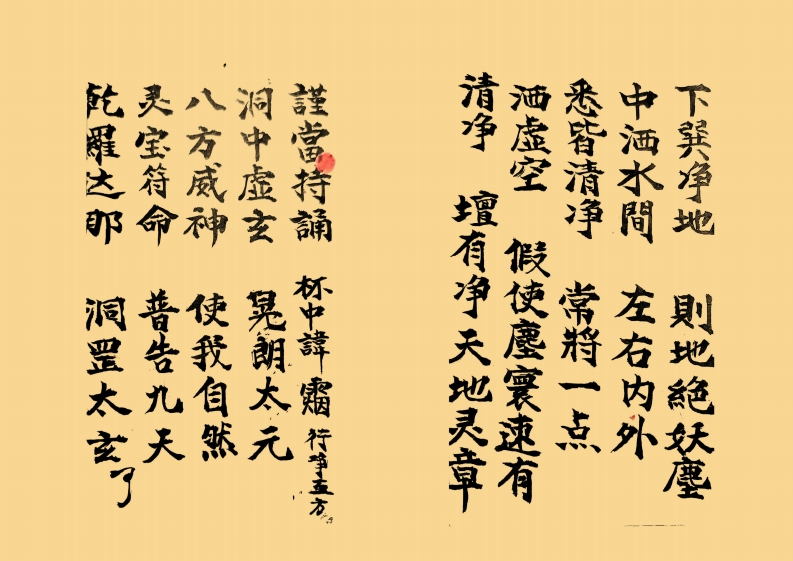 下巽净地 則地絶妖塵
中洒水間 左右内外
悉皆清净 常將一点
洒虚空 假使塵寰速有
清净 壇有净天地灵章
謹當持誦 杯中諱 行净五方
洞中虚玄 晃朗太元
八方威神 使我自然
灵宝符命 普告九天
乾羅达耶 洞罡太玄